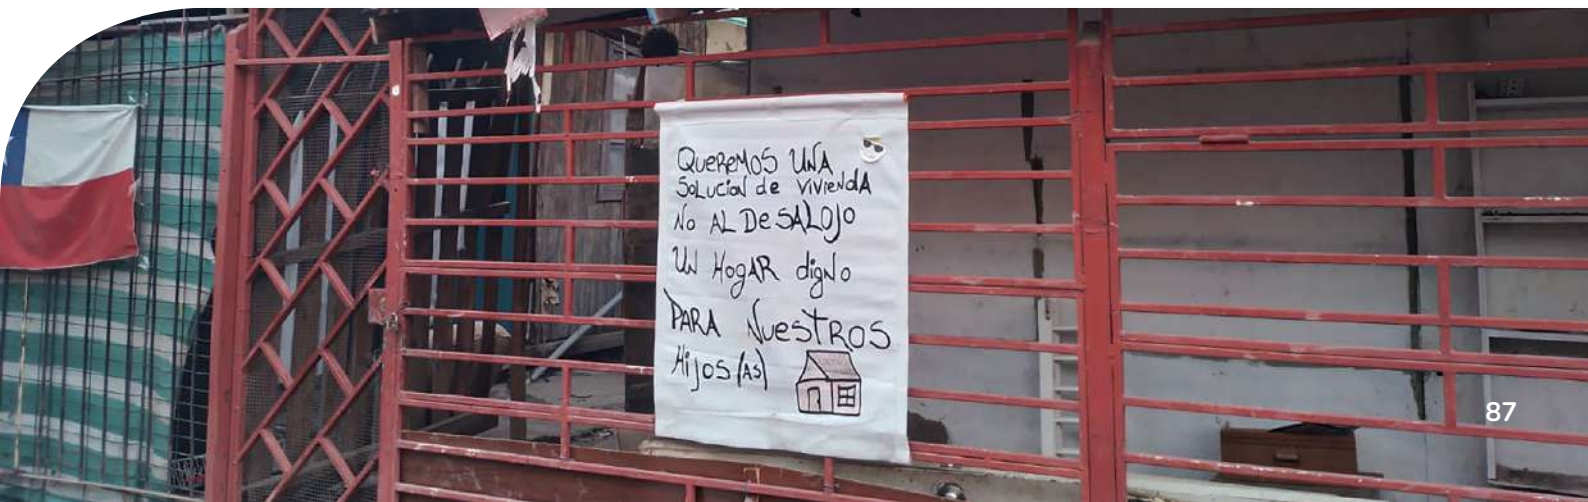 QUEREMOS UNA
SOLUCION de VIVIENDA
NO AL DESALOJO
UN HOGAR digNo
PARA NUESTROS
HIJOS(AS)
87